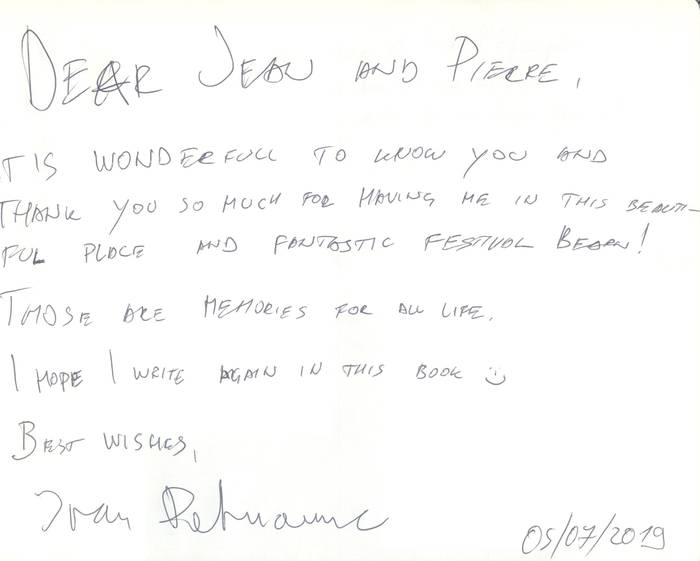 DEAR JEAN AND PIERRE,
T IS WONDERFULL TO KNOW YOU AND
THANK YOU SO MUCH FOR HAVING ME IN THIS BEAUTI-
FUL PLACE AND FANTASTIC FESTIVAL BEARN!
THOSE ARE MEMORIES FOR ALL LIFE.
I HOPE I WRITE AGAIN IN THIS BOOK :)
BEST WISHES,
Ivan
05/07/2019